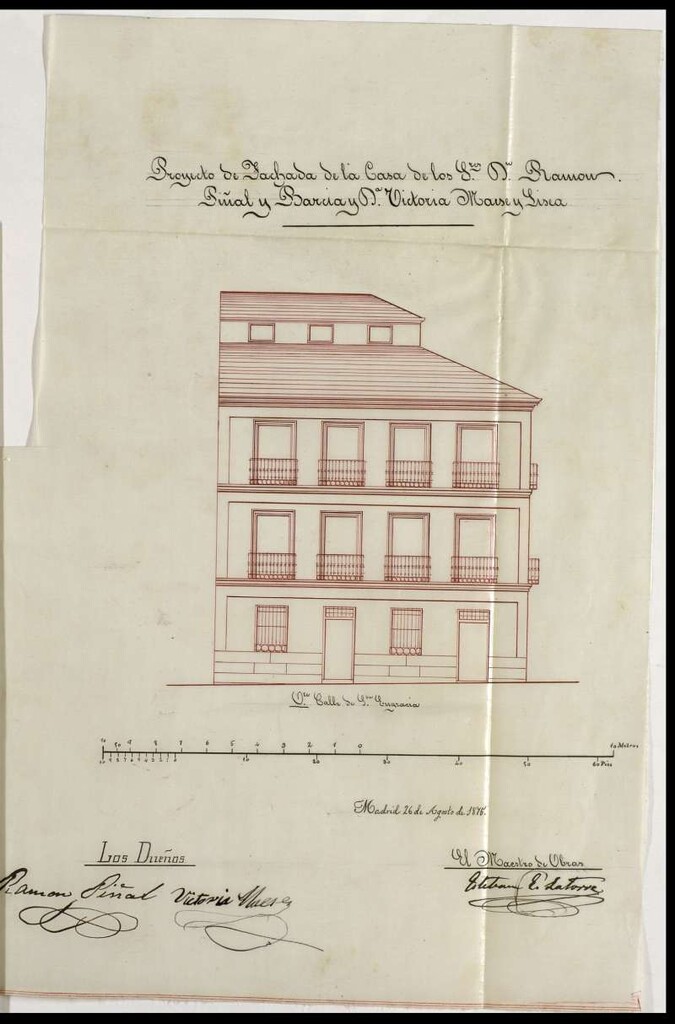 Proyecto de Fachada de la Casa de los Sres Dn Ramon
Piñal y Barcia y Da Victoria Maese y Lisea
Cta Calle de Sta Engracia
10 9 8 7 6 5 4 3 2 1 0 10 Metros
10 20 30 40 50 60 Pies
Madrid 26 de Agosto de 1878.
Los Dueños
El Maestro de Obras
Ramon Piñal Victoria Maese
Esteban Latorre